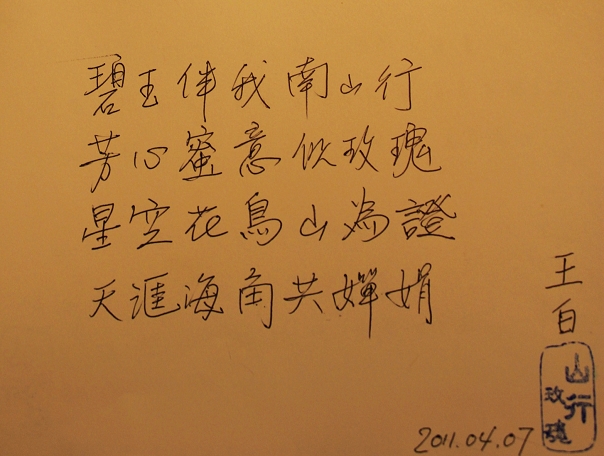 碧玉伴我南山行
芳心蜜意似玫瑰
星空花鳥山為證
天涯海角共嬋娟
王白
山行
玫瑰
2011.04.07